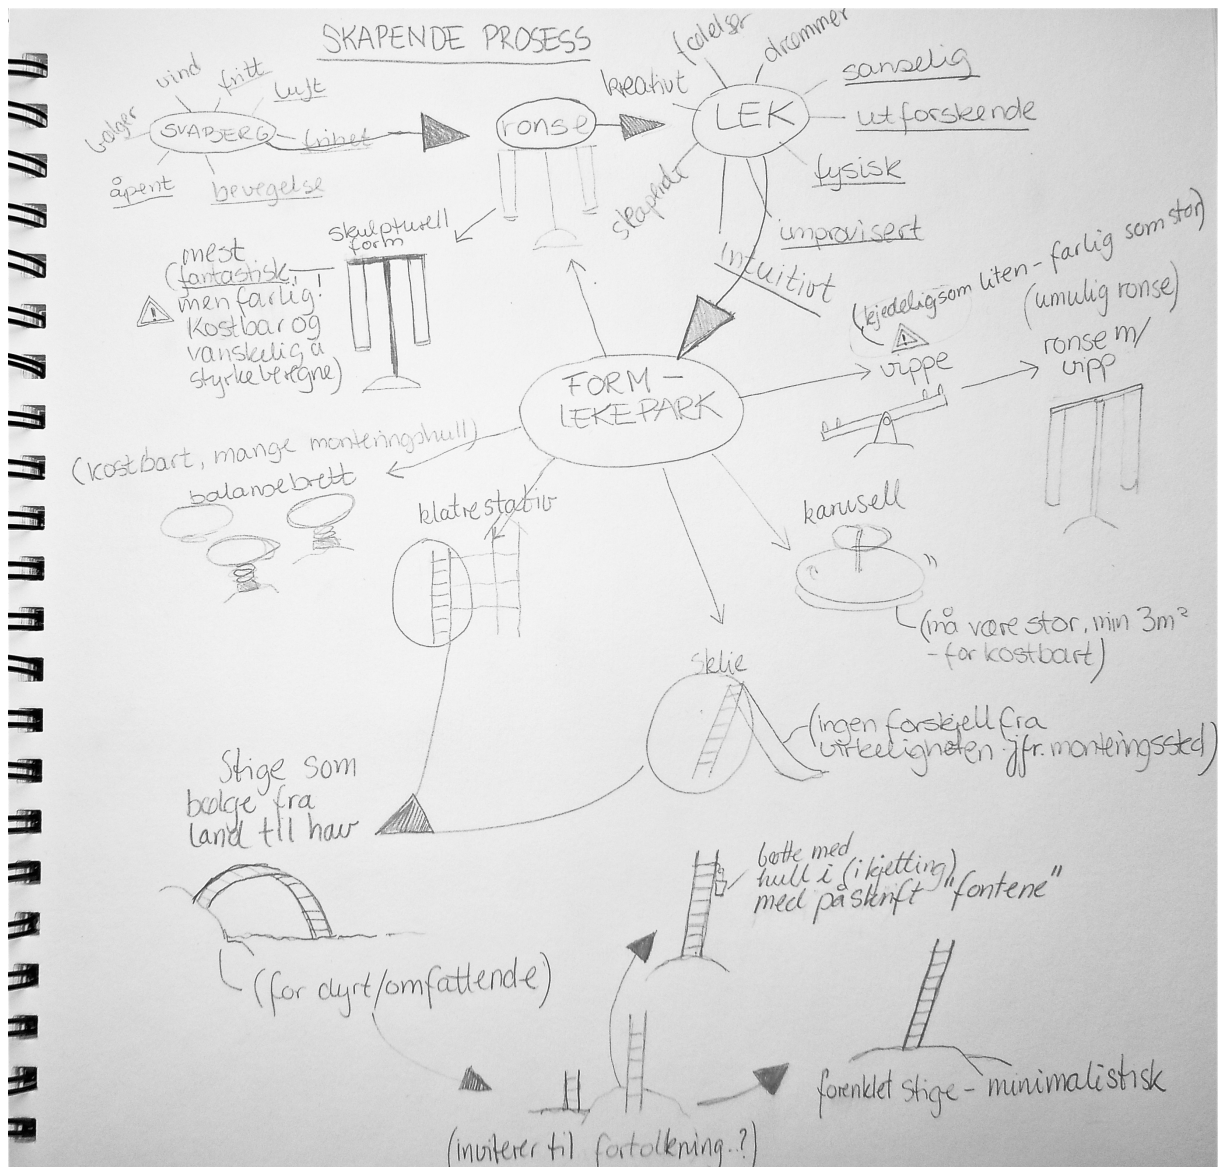 SKAPENDE PROSESS
vind
fritt
luft
bølger
SVABERG
frihet
åpent
bevegelse
ronse
LEK
kreativt
følelser
drømmer
sanselig
utforskende
fysisk
improvisert
intuitivt
skapende
skulpturell
form
(mest
fantastisk,
men farlig!
Kostbar og
vanskelig å
styrkeberegne)
FORM-
LEKEPARK
(kjedelig som liten - farlig som stor)
vippe
(umulig ronse)
ronse m/
vipp
(kostbart, mange monteringshull)
balansebrett
klatrestativ
karusell
(må være stor, min 3m²
- for kostbart)
Sklie
(ingen forskjell fra
virkeligheten jfr. monteringssted)
Stige som
bølge fra
land til hav
(for dyrt/omfattende)
bøtte med
hull i (i kjetting)
med påskrift "fontene"
forenklet stige - minimalistisk
(inviterer til fortolkning..?)